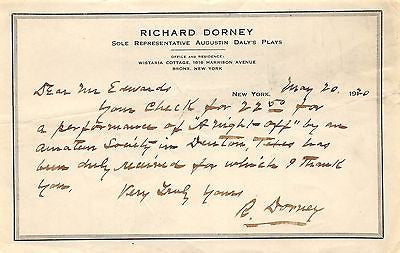 RICHARD DORNEY
SOLE REPRESENTATIVE AUGUSTIN DALY'S PLAYS
OFFICE AND RESIDENCE:
WISTARIA COTTAGE, 1616 HARRISON AVENUE
BRONX, NEW YORK
NEW YORK. May 20. 1920
Dear Mr Edwards
Your Check for 22 00 for
a performance of "A Night Off" by an
amateur Society in Denton, Texas has
been duly received for which I thank
you.
Very Truly Yours
R. Dorney